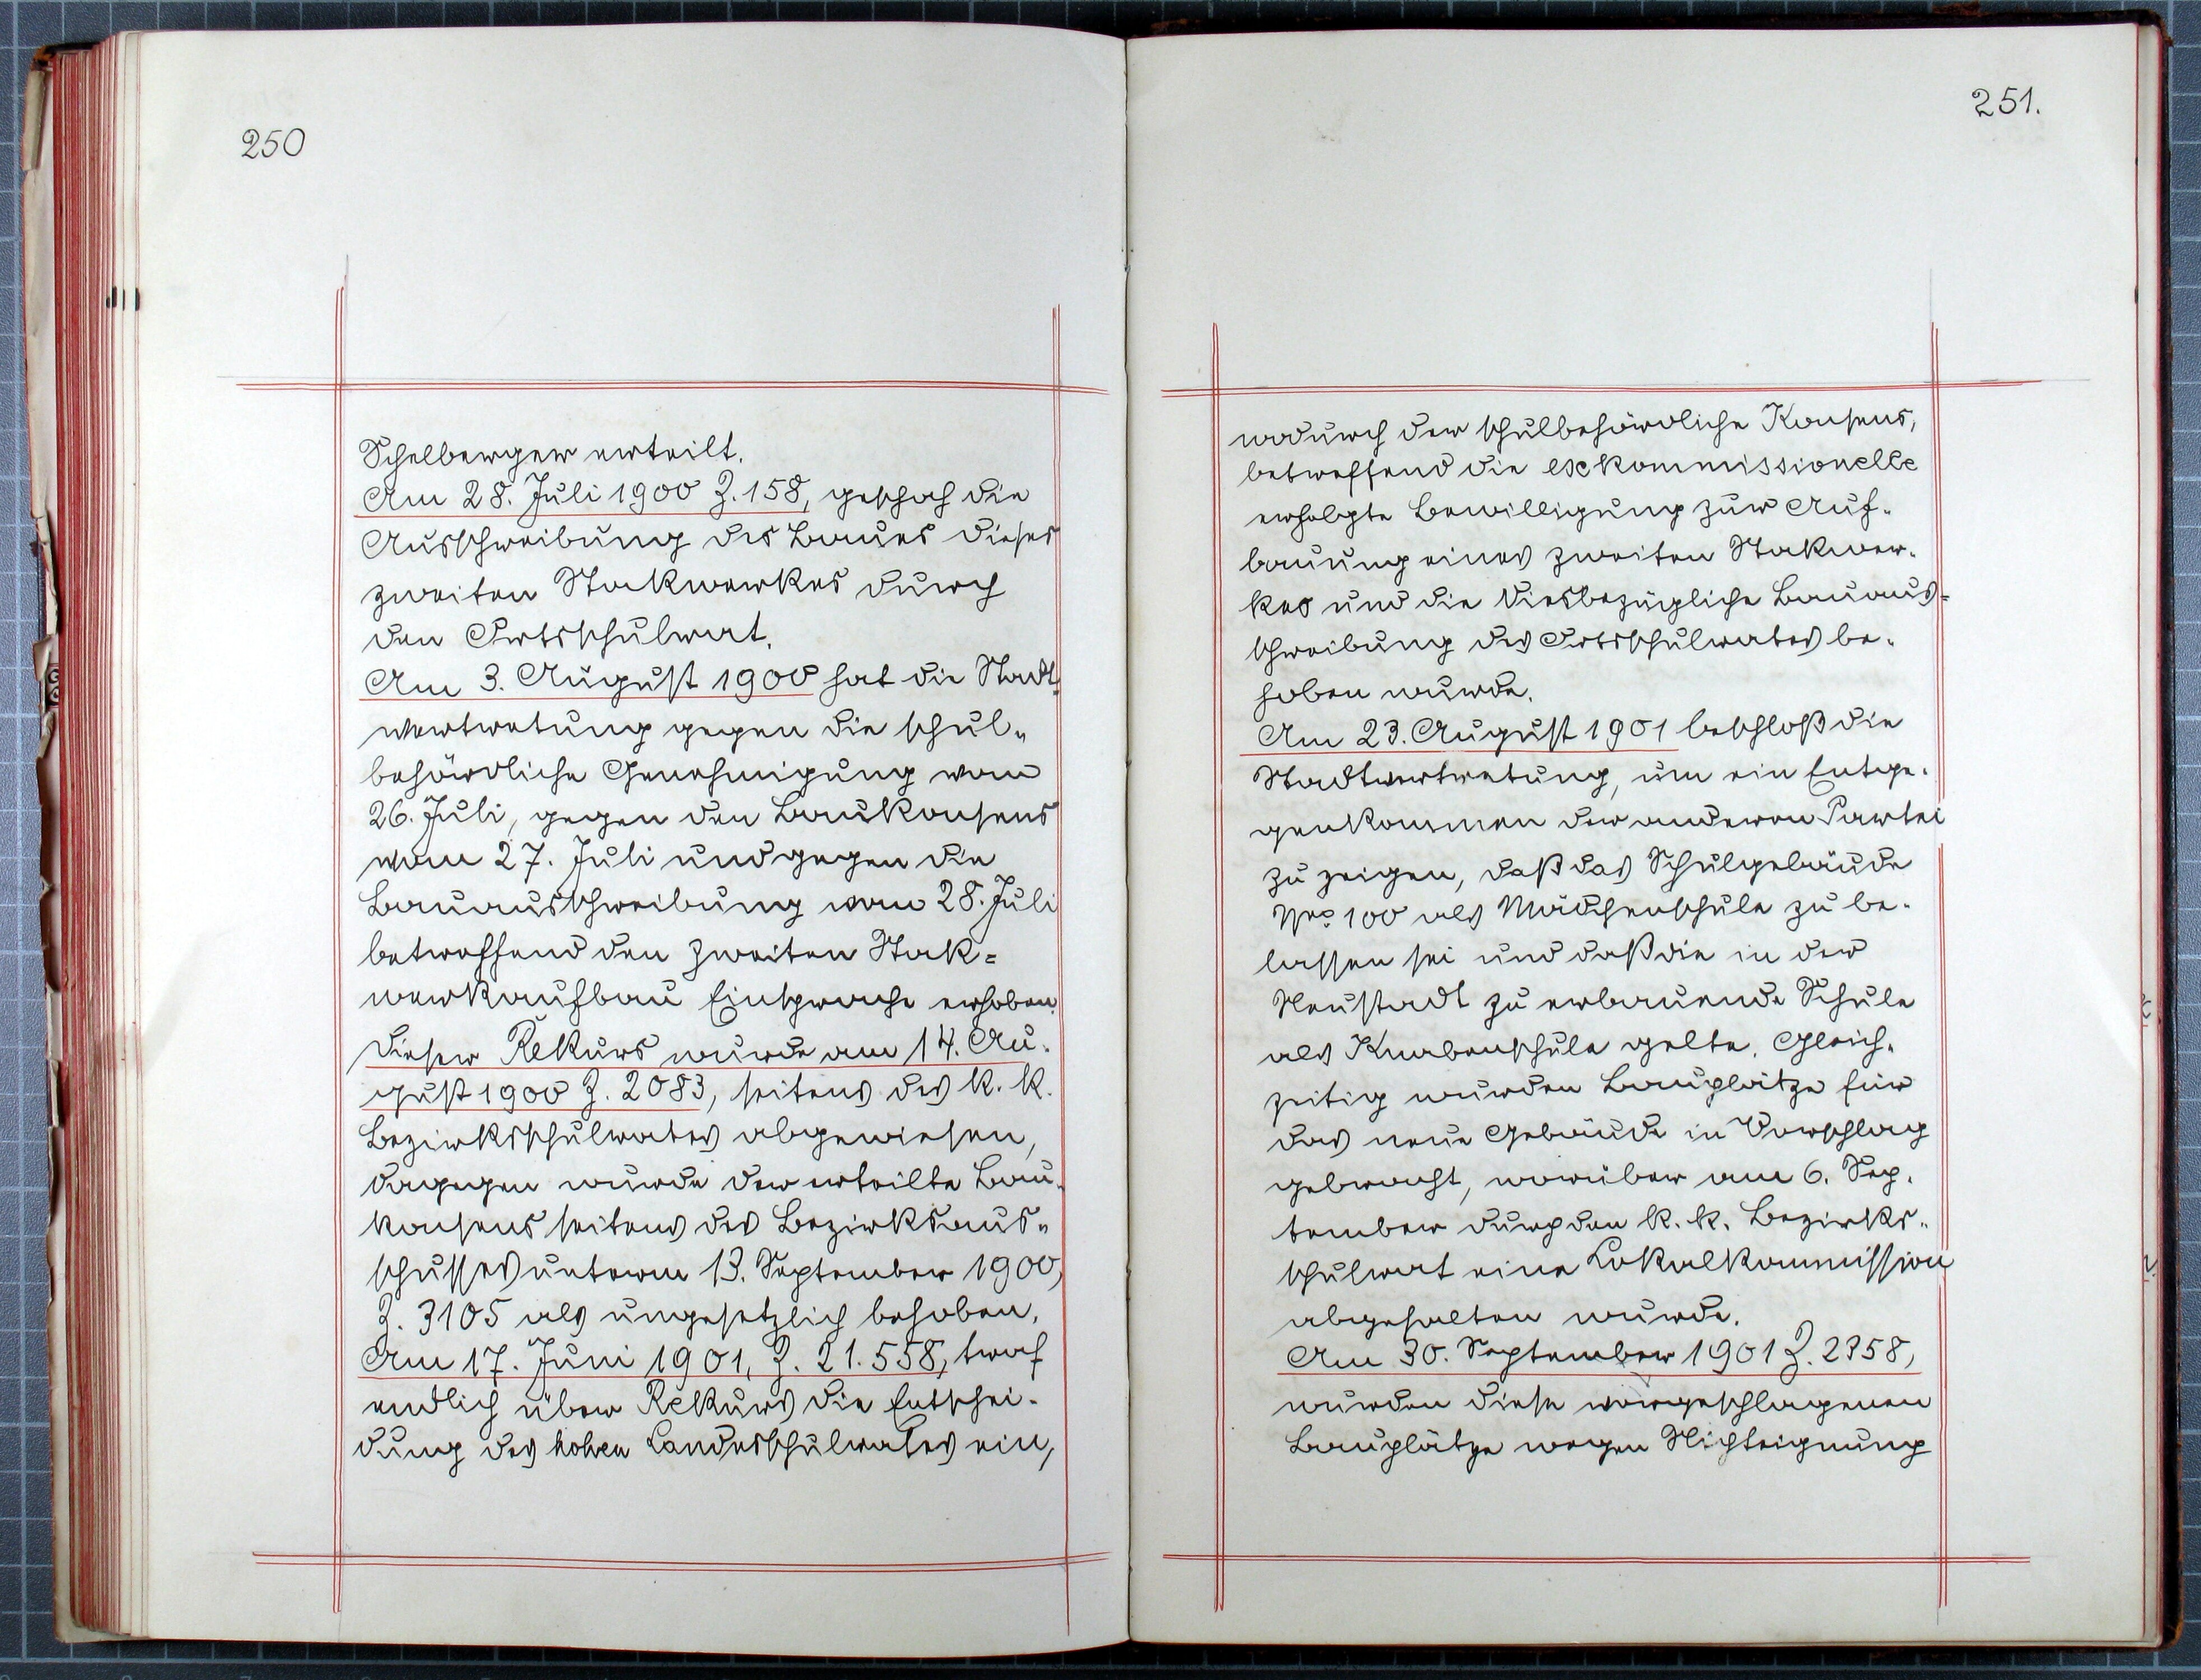 250
Schelberger erteilt.
Am 28. Juli 1900 Z. 158, geschah die
Ausschreibung des Baues dieses
zweiten Stokwerkes durch
den Ortsschulrat.
Am 3. August 1900 hat die Stadt-
vertretung gegen die schul-
behördliche Genehmigung vom
26. Juli, gegen den Baukonsens
vom 27. Juli und gegen die
Bauausschreibung vom 28. Juli
betreffend den zweiten Stok-
werkaufbau Einsprache erhoben.
Dieser Rekurs wurde am 14. Au-
gust 1900 Z. 2083, seitens des k. k.
Bezirksschulrates abgewiesen,
dagegen wurde der erteilte Bau-
konsens seitens des Bezirksaus-
schusses unterm 13. September 1900,
Z. 3105 als ungesetzlich behoben.
Am 17. Juni 1901, Z. 21.558, traf
endlich über Rekurs die Entschei-
dung des hohen Landesschulrates ein,
251.
wodurch der schulbehördliche Konsens,
betreffend die exkommissionelle
erfolgte Bewilligung zur Auf-
bauung eines zweiten Stokwer-
kes und die diesbezügliche Bauaus-
schreibung des Ortsschulrates be-
hoben wurde.
Am 23. August 1901 beschloß die
Stadtvertretung, um ein Entge-
genkommen der anderen Partei
zu zeigen, daß das Schulgebäude
Nro 100 als Mädchenschule zu be-
lassen sei und daß die in der
Neustadt zu erbauende Schule
als Knabenschule gelte. Gleich-
zeitig wurden Bauplätze für
das neue Gebäude in Vorschlag
gebracht, worüber am 6. Sep-
tember durch den k. k. Bezirks-
schulrat eine Lokalkommission
abgehalten wurde.
Am 30. September 1901 Z. 2358,
wurden diese vorgeschlagenen
Bauplätze wegen Nichteignung